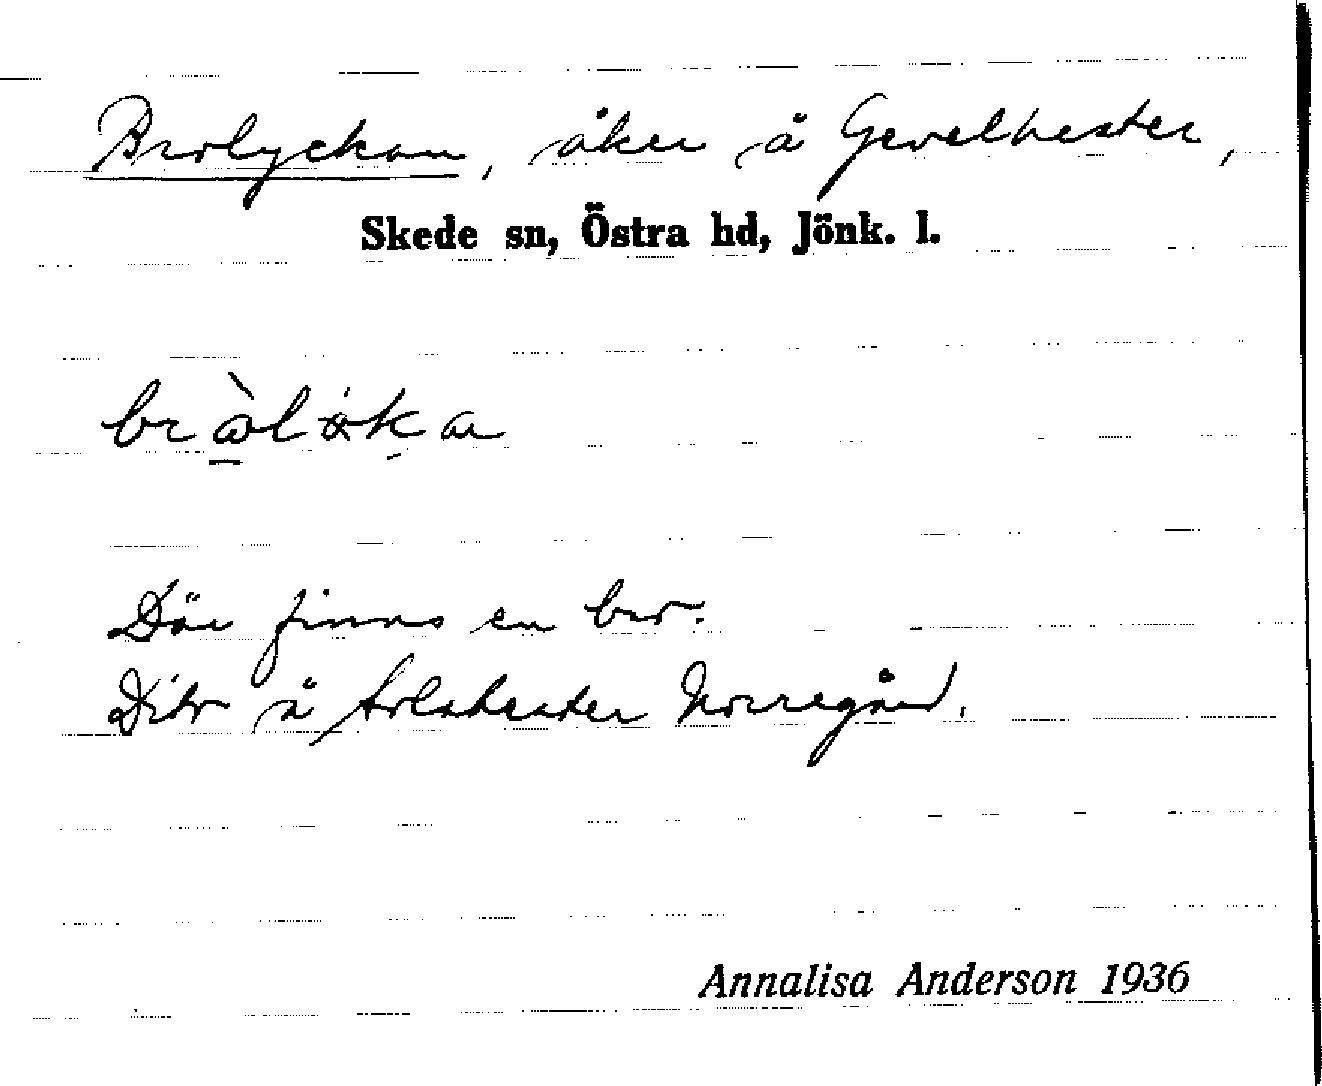 Brolyckan, åker å Gevelhester,
Skede sn, Östra hd, Jönk. l.
Där finns en bro.
Dito å Norregård.
Annalisa Anderson 1936